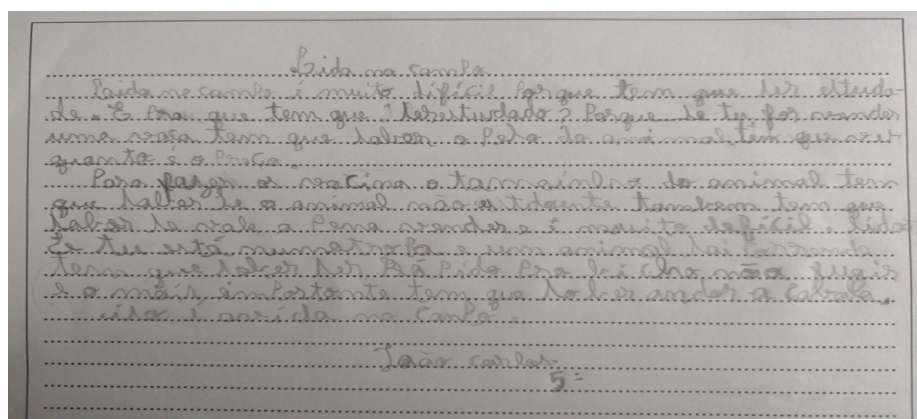 Lida no campo
Laida no campo é muito difícil Porque tem que ter estuda-
do. E Pra que tem que ter estudado? Porque se tu for vender
uma vaca tem que saber o Peso do animal tem que ver
quanto é o Preço.
Para fazer as vacina o tamainho do animal tem
que saber se o animal não doente tambem tem que
saber se vale a Pena vender e é muito defícil. lidar
Se tu está numa tropa e um animal sai
tem que saber ser Rá Pido Pra bicho não fugir
e o mais importante tem que saber andar a cavala.
isto é a vida no canpo.
João Carlos
5º